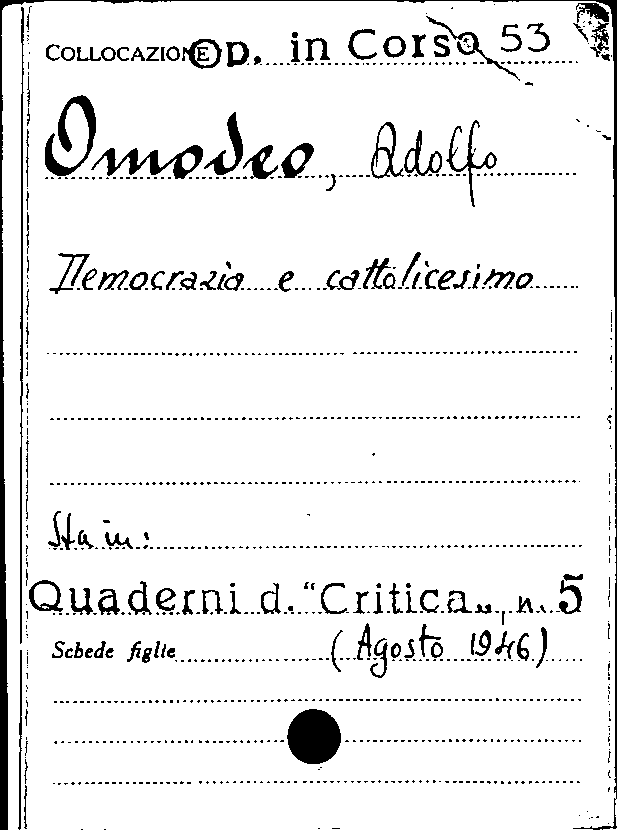 COLLOCAZIONE Op. in Corso 53
Omodeo, Adolfo
Democrazia e cattolicesimo
Sta in:
Quaderni d. "Critica„, n. 5
Schede figlie (Agosto 1946)